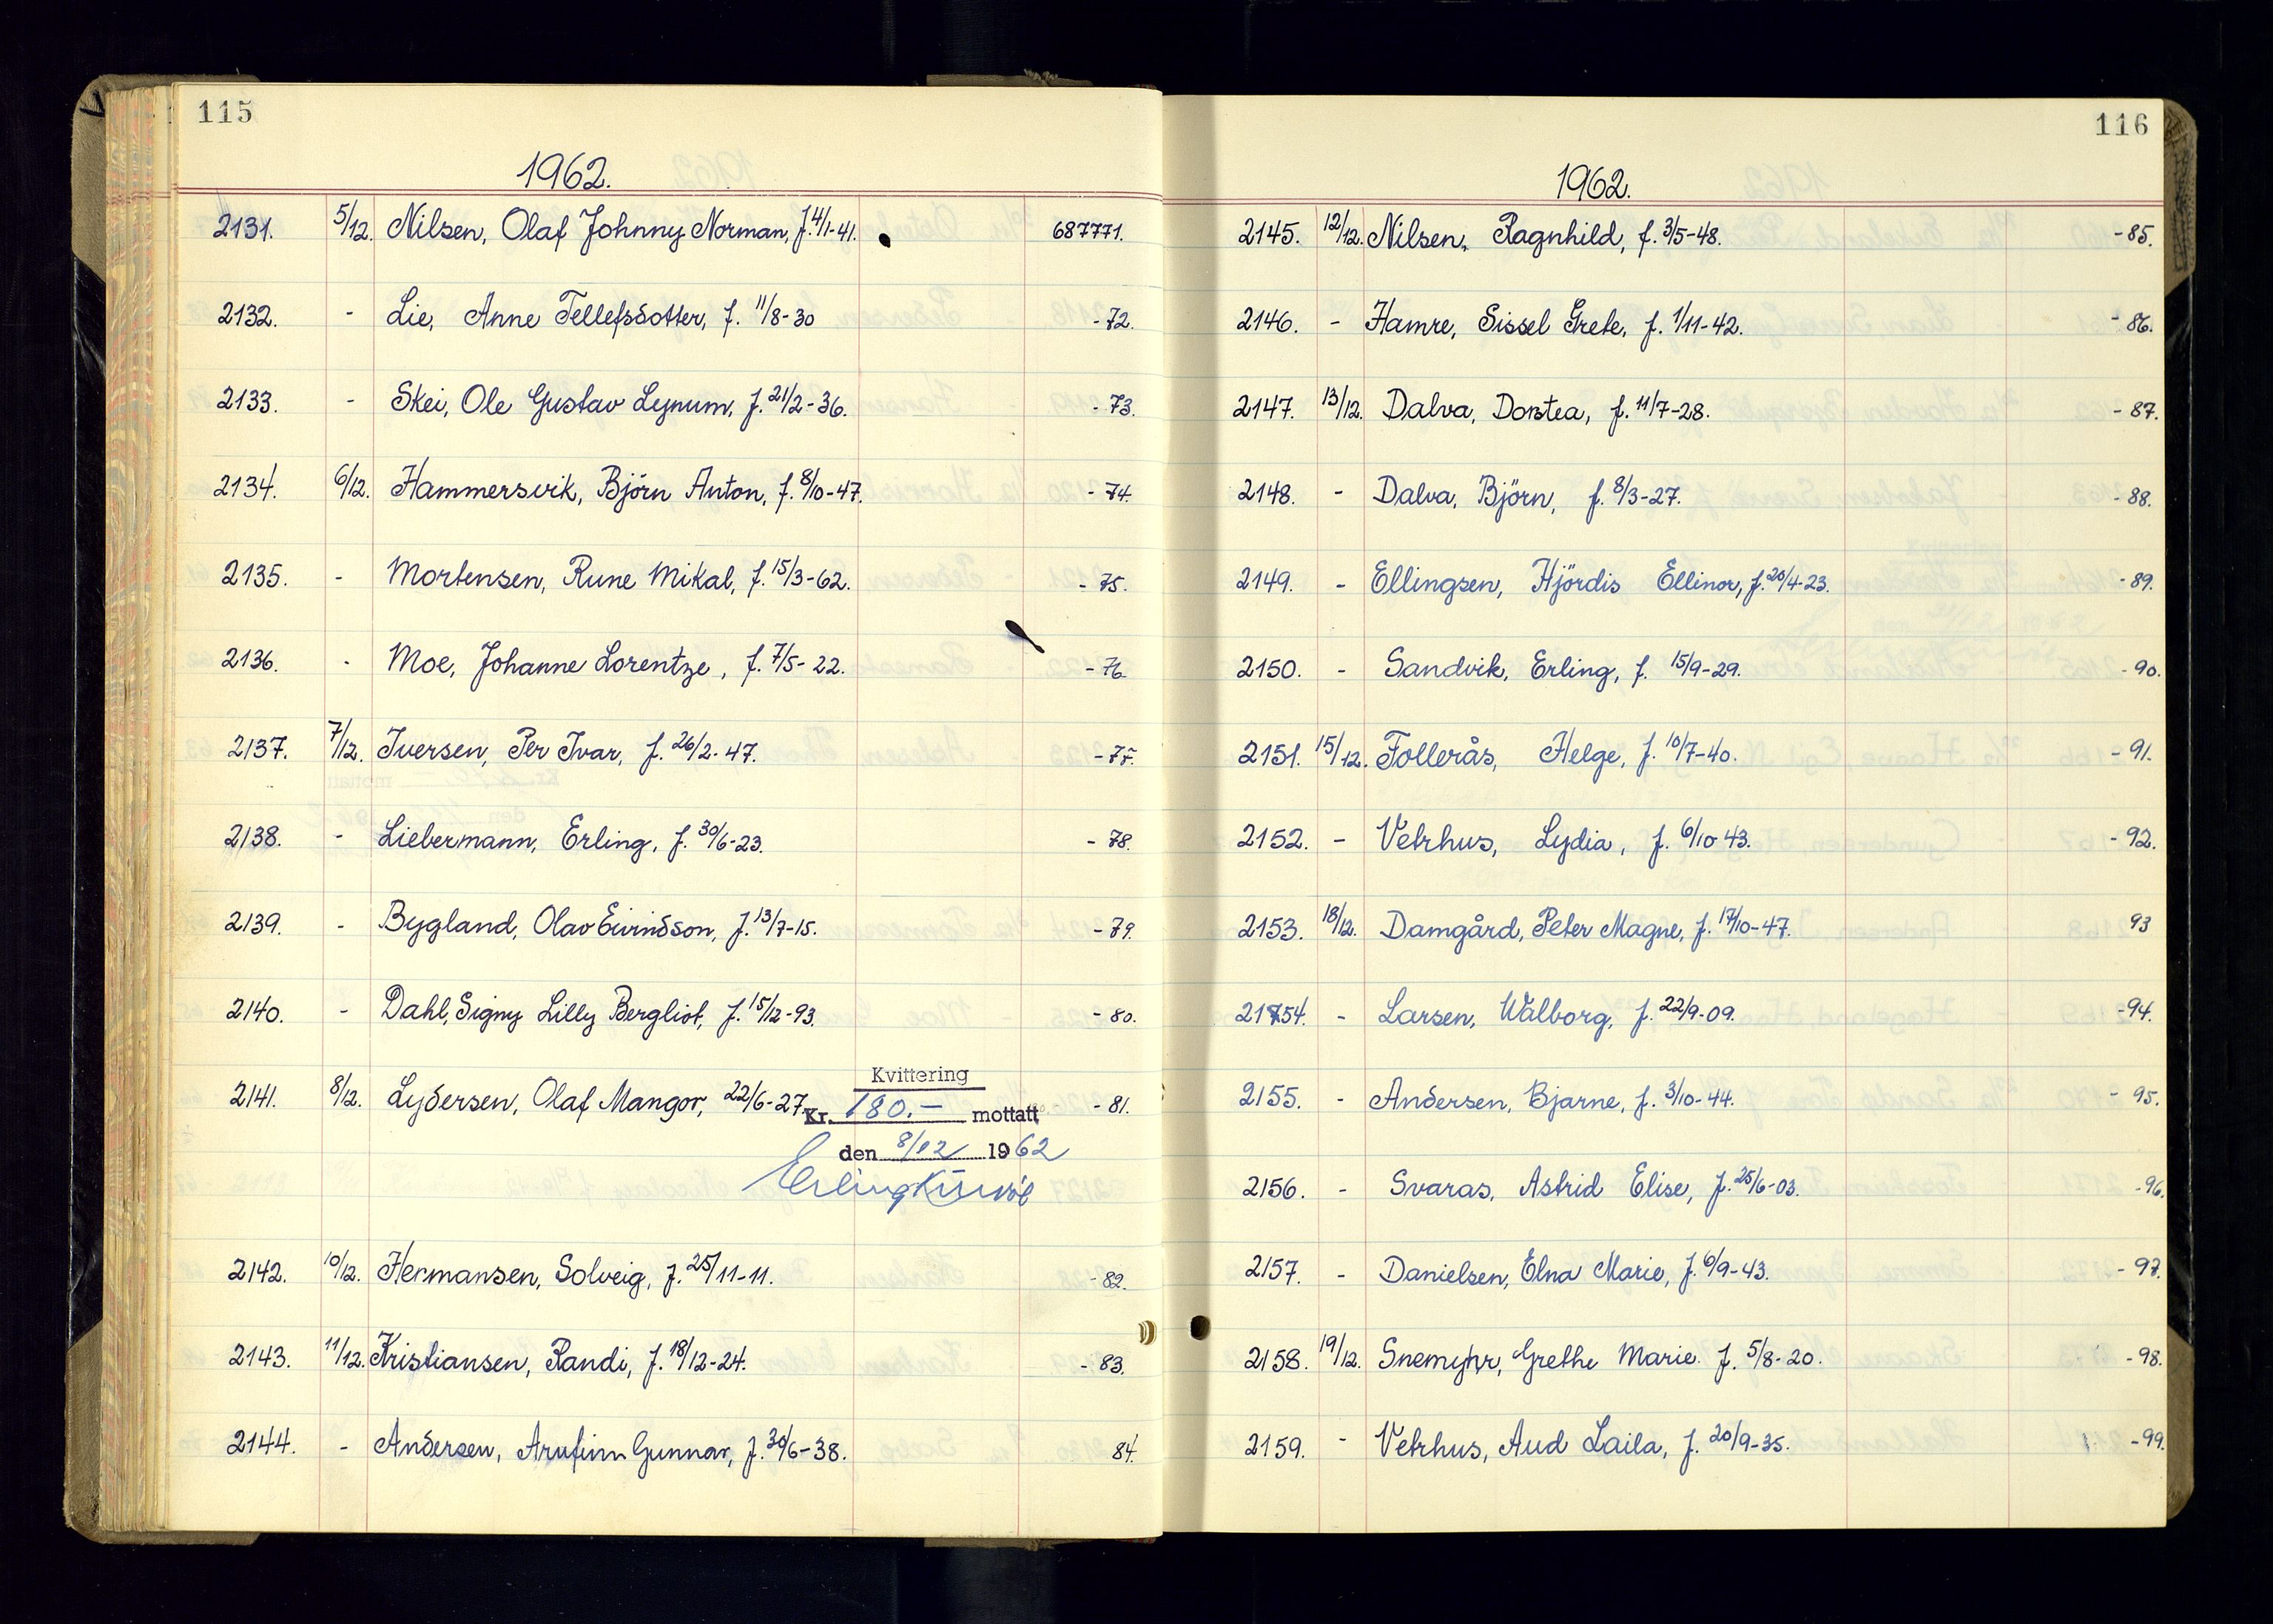 115
1962.
2131. 5/12. Nilsen, Olaf Johnny Norman, f. 4/1-41. 687771.
2132. - Lie, Anne Tellefsdotter, f. 11/8-30 -72.
2133. - Skei, Ole Gustav Lynum, f. 21/2-36. -73.
2134. 6/12. Hammersvik, Björn Anton, f. 8/10-47. -74.
2135. - Mortensen, Rune Mikal, f. 15/3-62. -75.
2136. - Moe, Johanne Lorentze, f. 7/5-22. -76.
2137. 7/12. Iversen, Per Ivar, f. 26/2-47. -77.
2138. - Liebermann, Erling, f. 30/6-23. -78.
2139. - Bygland, Olav Eivindsson, f. 13/7-15. -79.
2140. - Dahl, Signy Lilly Bergliot, f. 15/12-93. -80.
2141. 8/12. Lydersen, Olaf Mangor, 22/6-27. -81.
Kvittering
Kr. 180.- mottatt
den 8/12 1962
Erling
2142. 10/12. Hermansen, Solveig, f. 25/11-11. -82.
2143. 11/12. Kristiansen, Randi, f. 18/12-24. -83.
2144. - Andersen, Arnfinn Gunnar, f. 30/6-38. 84.
116
1962.
2145. 12/12. Nilsen, Ragnhild, f. 3/5-48. -85.
2146. - Hamre, Sissel Grete, f. 1/11-42. -86.
2147. 13/12. Dalva, Dorotea, f. 11/7-28. -87.
2148. - Dalva, Björn, f. 8/3-27. -88.
2149. - Ellingsen, Hjördis Ellinor, f. 20/4-23. -89.
2150. - Sandvik, Erling, f. 15/9-29. -90.
2151. 15/12. Follerås, Helge, f. 10/7-40. -91.
2152. - Vetrhus, Lydia, f. 6/10-43. -92.
2153. 18/12. Damgård, Peter Magne, f. 17/10-47. 93
2154. - Larsen, Walborg, f. 22/9-09. -94.
2155. - Andersen, Bjarne, f. 3/10-44. -95.
2156. - Svaras, Astrid Elise, f. 25/6-03. -96.
2157. - Danielsen, Elna Marie, f. 6/9-43. -97.
2158. 19/12. Snemyhr, Grethe Marie. f. 5/8-20. -98.
2159. - Vetrhus, Aud Laila, f. 20/9-35. -99.